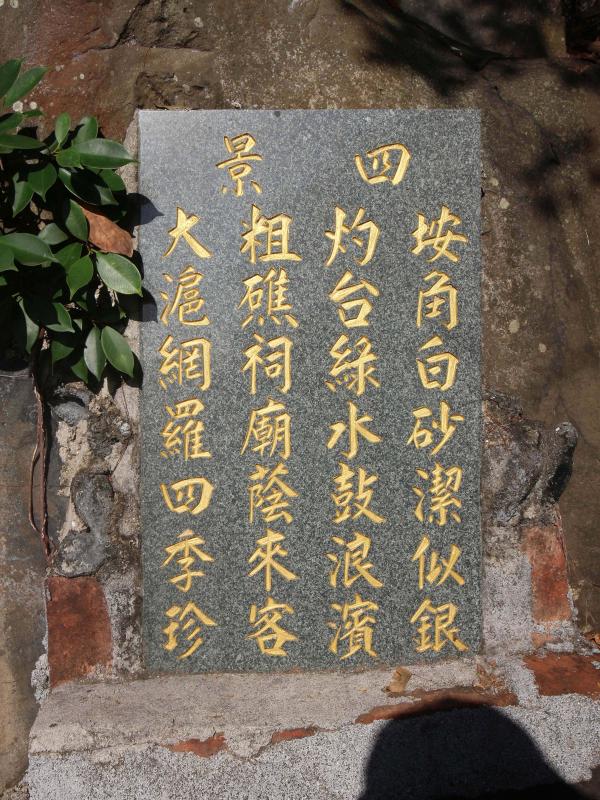 四景
垵角白砂潔似銀
灼台綠水鼓浪濱
粗礁祠廟蔭來客
大滬網羅四季珍